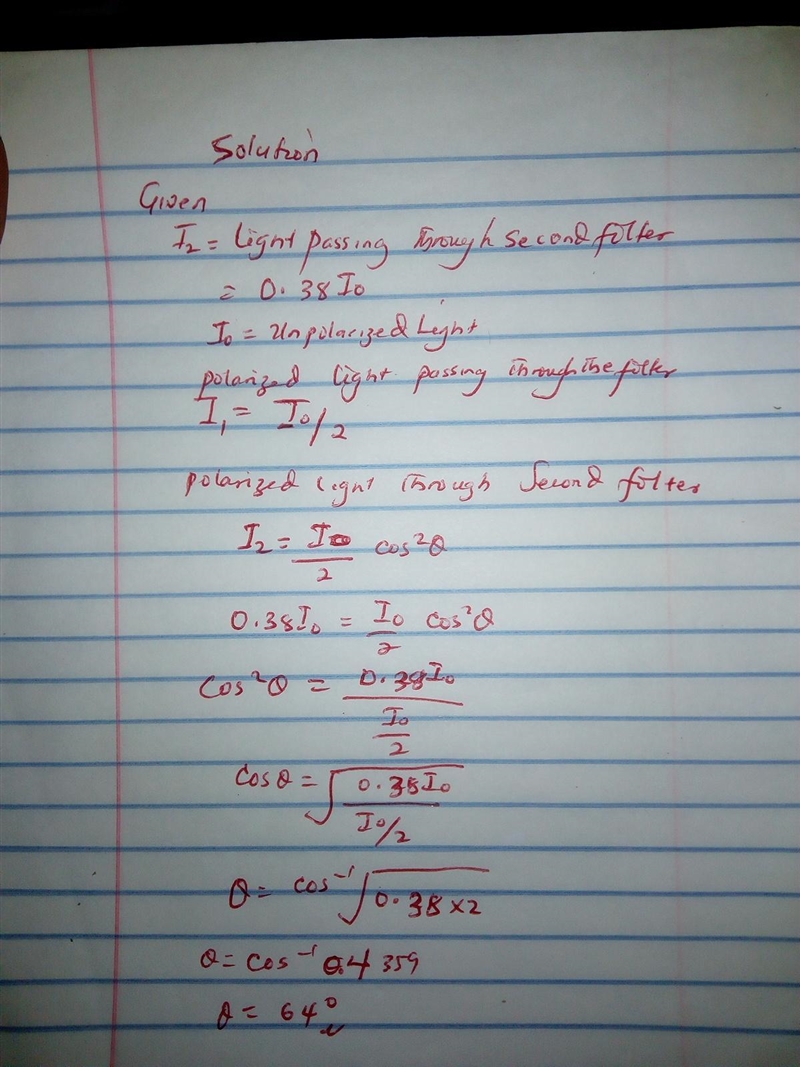 Solution
Given
I₂ = Light passing through second filter
= 0.38I₀
I₀ = Unpolarized Light
polarized light passing through the filter
I₁ = I₀/2
polarized light through Second filter
I₂ = I₀/2 cos²θ
0.38I₀ = I₀/2 cos²θ
Cos²θ = 0.38I₀/(I₀/2)
Cosθ = √(0.38I₀/(I₀/2))
θ = cos⁻¹√(0.38×2)
θ = cos⁻¹ 0.4359
θ = 64°